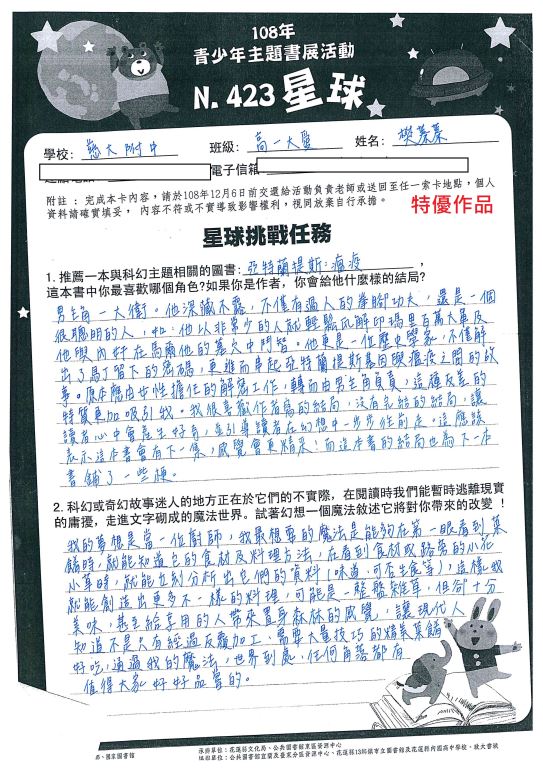 108年
青少年主題書展活動
N. 423 星球
學校: 慈大附中 班級: 高一大愛 姓名: 樊蓁蓁
電子信箱
附註：完成本卡內容，請於108年12月6日前交還給活動負責老師或送回至任一索卡地點，個人
資料請確實填妥， 內容不符或不實導致影響權利，視同放棄自行承擔。
特優作品
星球挑戰任務
1. 推薦一本與科幻主題相關的圖書: 亞特蘭提斯:瘟疫，
這本書中你最喜歡哪個角色?如果你是作者，你會給他什麼樣的結局?
男主角—大衛。他深藏不露，不僅有過人的拳腳功夫，還是一個
很聰明的人，如:他以非常少的人就輕鬆瓦解印瑪里百萬大軍及
他與內奸在馬爾他的墓穴中鬥智。他更是一位歷史學家，不僅解
出了馬丁留下的密碼，更進而串起亞特蘭提斯基因與瘟疫之間的故
事。原本應由女性擔任的解密工作，轉而由男主角負責，這種反差的
特質更加吸引我。我很喜歡作者寫的結局，沒有完結的結局，讓
讀者心中會產生好奇，並引導讀者在幻想中一步步往前走。這應該
表示這本書會有下一集，感覺會更精采!而這本書的結局也為下一本
書鋪了一些梗。
2. 科幻或奇幻故事迷人的地方正在於它們的不實際，在閱讀時我們能暫時逃離現實
的庸擾，走進文字砌成的魔法世界。試著幻想一個魔法並敘述它將對你帶來的改變！
我的夢想是當一位廚師，我最想要的魔法是能夠在第一眼看到菜
餚時，就能知道它的食材及料理方法，在看到食材或路旁的小花
小草時，就能立刻分析出它們的資料(味道、可否生食等)，這樣我
就能創造出更多不一樣的料理，可能是一盤盤雜草，但卻十分
美味，甚至給享用的人帶來置身森林的感覺，讓現代人
知道不是只有經過反覆加工、需要大量技巧的精美菜餚
好吃，通過我的魔法，世界到處、任何角落都有
值得大家好好品嘗的。
局、國家圖書館
承辦單位：花蓮縣文化局、公共圖書館東區資源中心
協辦單位：公共圖書館宜蘭及臺東分區資源中心、花蓮縣13鄉鎮市立圖書館及花蓮縣內國高中學校、政大書城